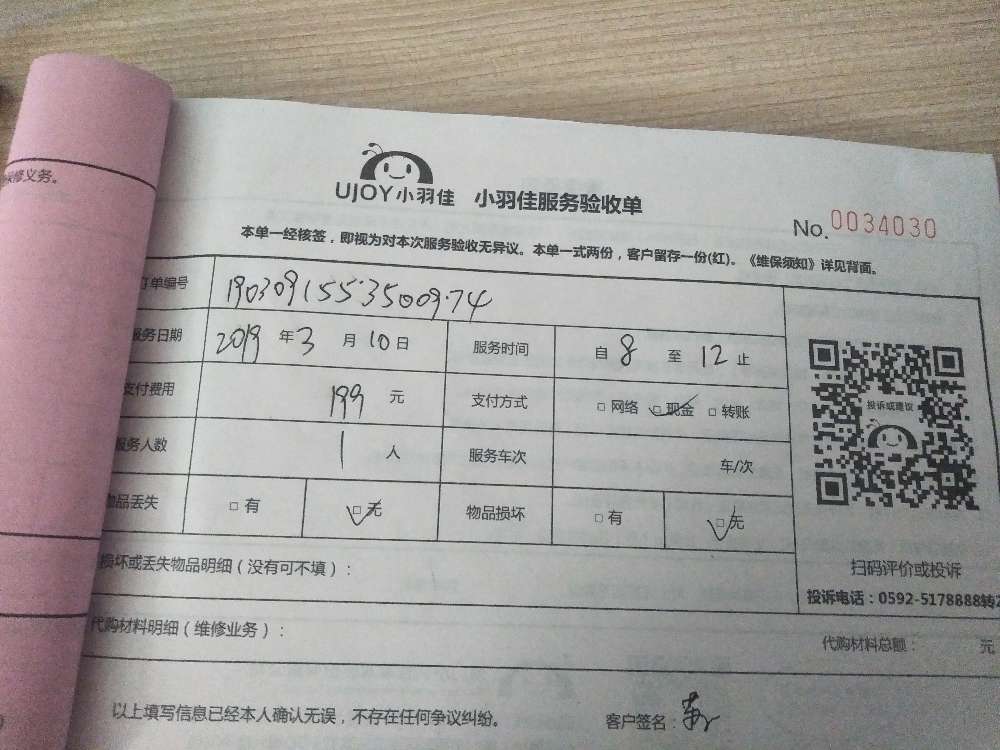 保修义务。
UJOY小羽佳 小羽佳服务验收单
No. 0034030
本单一经核签，即视为对本次服务验收无异议。本单一式两份，客户留存一份(红)。《维保须知》详见背面。
订单编号 1903091553500974
服务日期 2019 年 3 月 10 日 服务时间 自 8 至 12 止
支付费用 199 元 支付方式 □ 网络 □ 现金 □ 转账
服务人数 1 人 服务车次 车/次
物品丢失 □ 有 □ 无 物品损坏 □ 有 □ 无
投诉或建议
扫码评价或投诉
投诉电话：0592-5178888转2
损坏或丢失物品明细（没有可不填）：
代购材料明细（维修业务）： 代购材料总额： 元
以上填写信息已经本人确认无误，不存在任何争议纠纷。 客户签名：